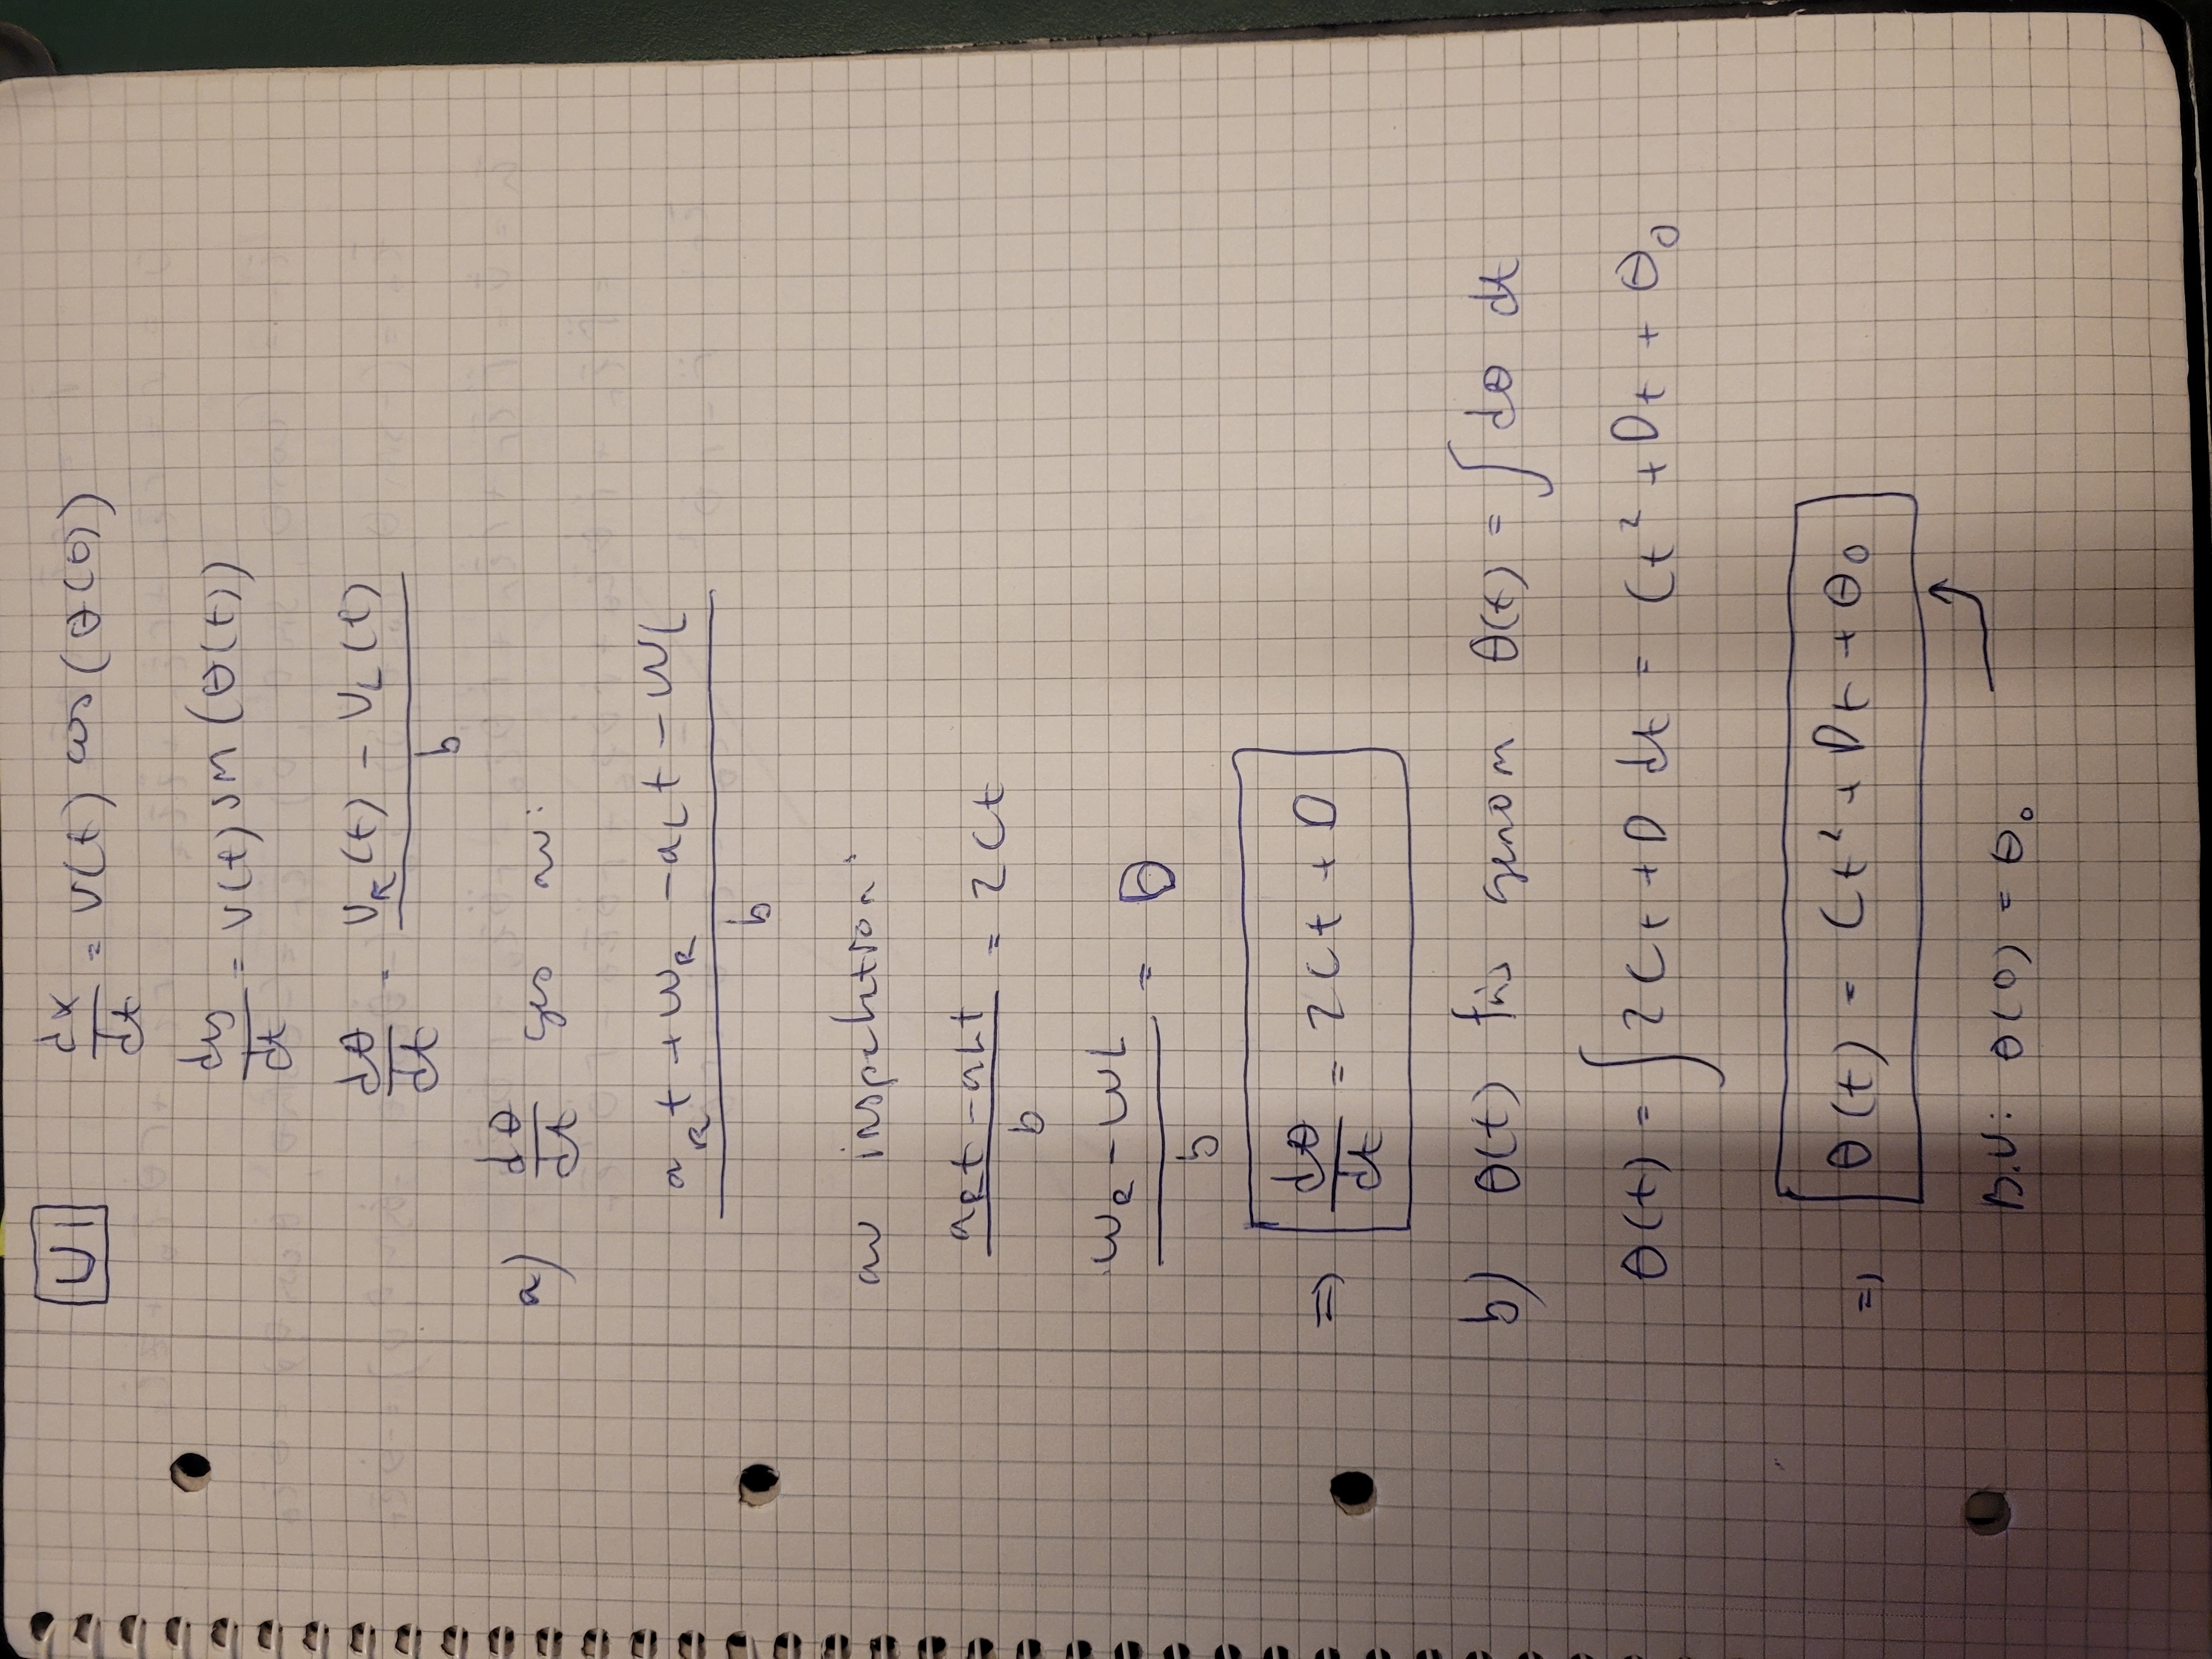 U1 dx/dt = v(t) cos(θ(t))
dy/dt = v(t) sin(θ(t))
dθ/dt = (v_R(t) - v_L(t))/b
a) dθ/dt ges av:
(a_R t + w_R - a_L t - w_L)/b
av inspektion:
(a_R t - a_L t)/b = 2Ct
(w_R - w_L)/b = D
⇒ dθ/dt = 2Ct + D
b) θ(t) fås genom θ(t) = ∫ dθ dt
θ(t) = ∫ 2Ct + D dt = Ct² + Dt + θ₀
⇒ θ(t) = Ct² + Dt + θ₀
B.V: θ(0) = θ₀